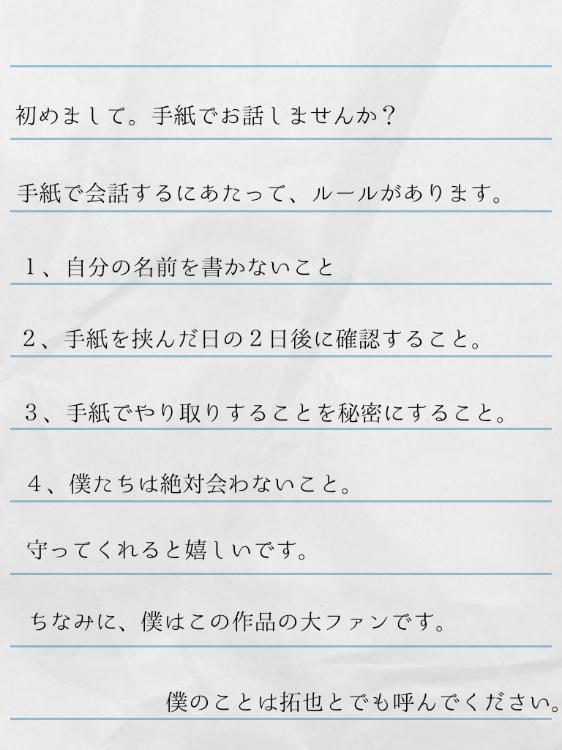 初めまして。手紙でお話しませんか？
手紙で会話するにあたって、ルールがあります。
１、自分の名前を書かないこと
２、手紙を挟んだ日の２日後に確認すること。
３、手紙でやり取りすることを秘密にすること。
４、僕たちは絶対会わないこと。
守ってくれると嬉しいです。
ちなみに、僕はこの作品の大ファンです。
僕のことは拓也とでも呼んでください。